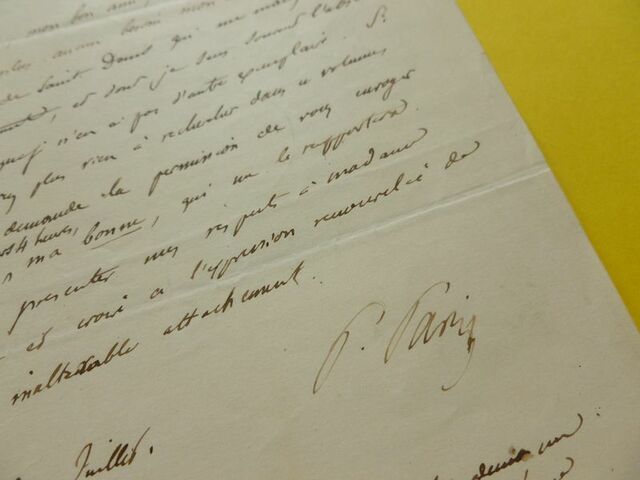 mon bon ami,
aucun besoin mon
de Saint Denis qui me manq
et dont je sens souvent l'abse
n'en a pas d'autre exemplaire. Si
plus rien à rechercher dans ce volume,
demande la permission de vous envoyer
4 heures,
ma bonne, qui me le rapportera.
présenter mes respects à madame
et croire à l'expression renouvelée de
inaltérable attachement.
P. Paris
Juillet.